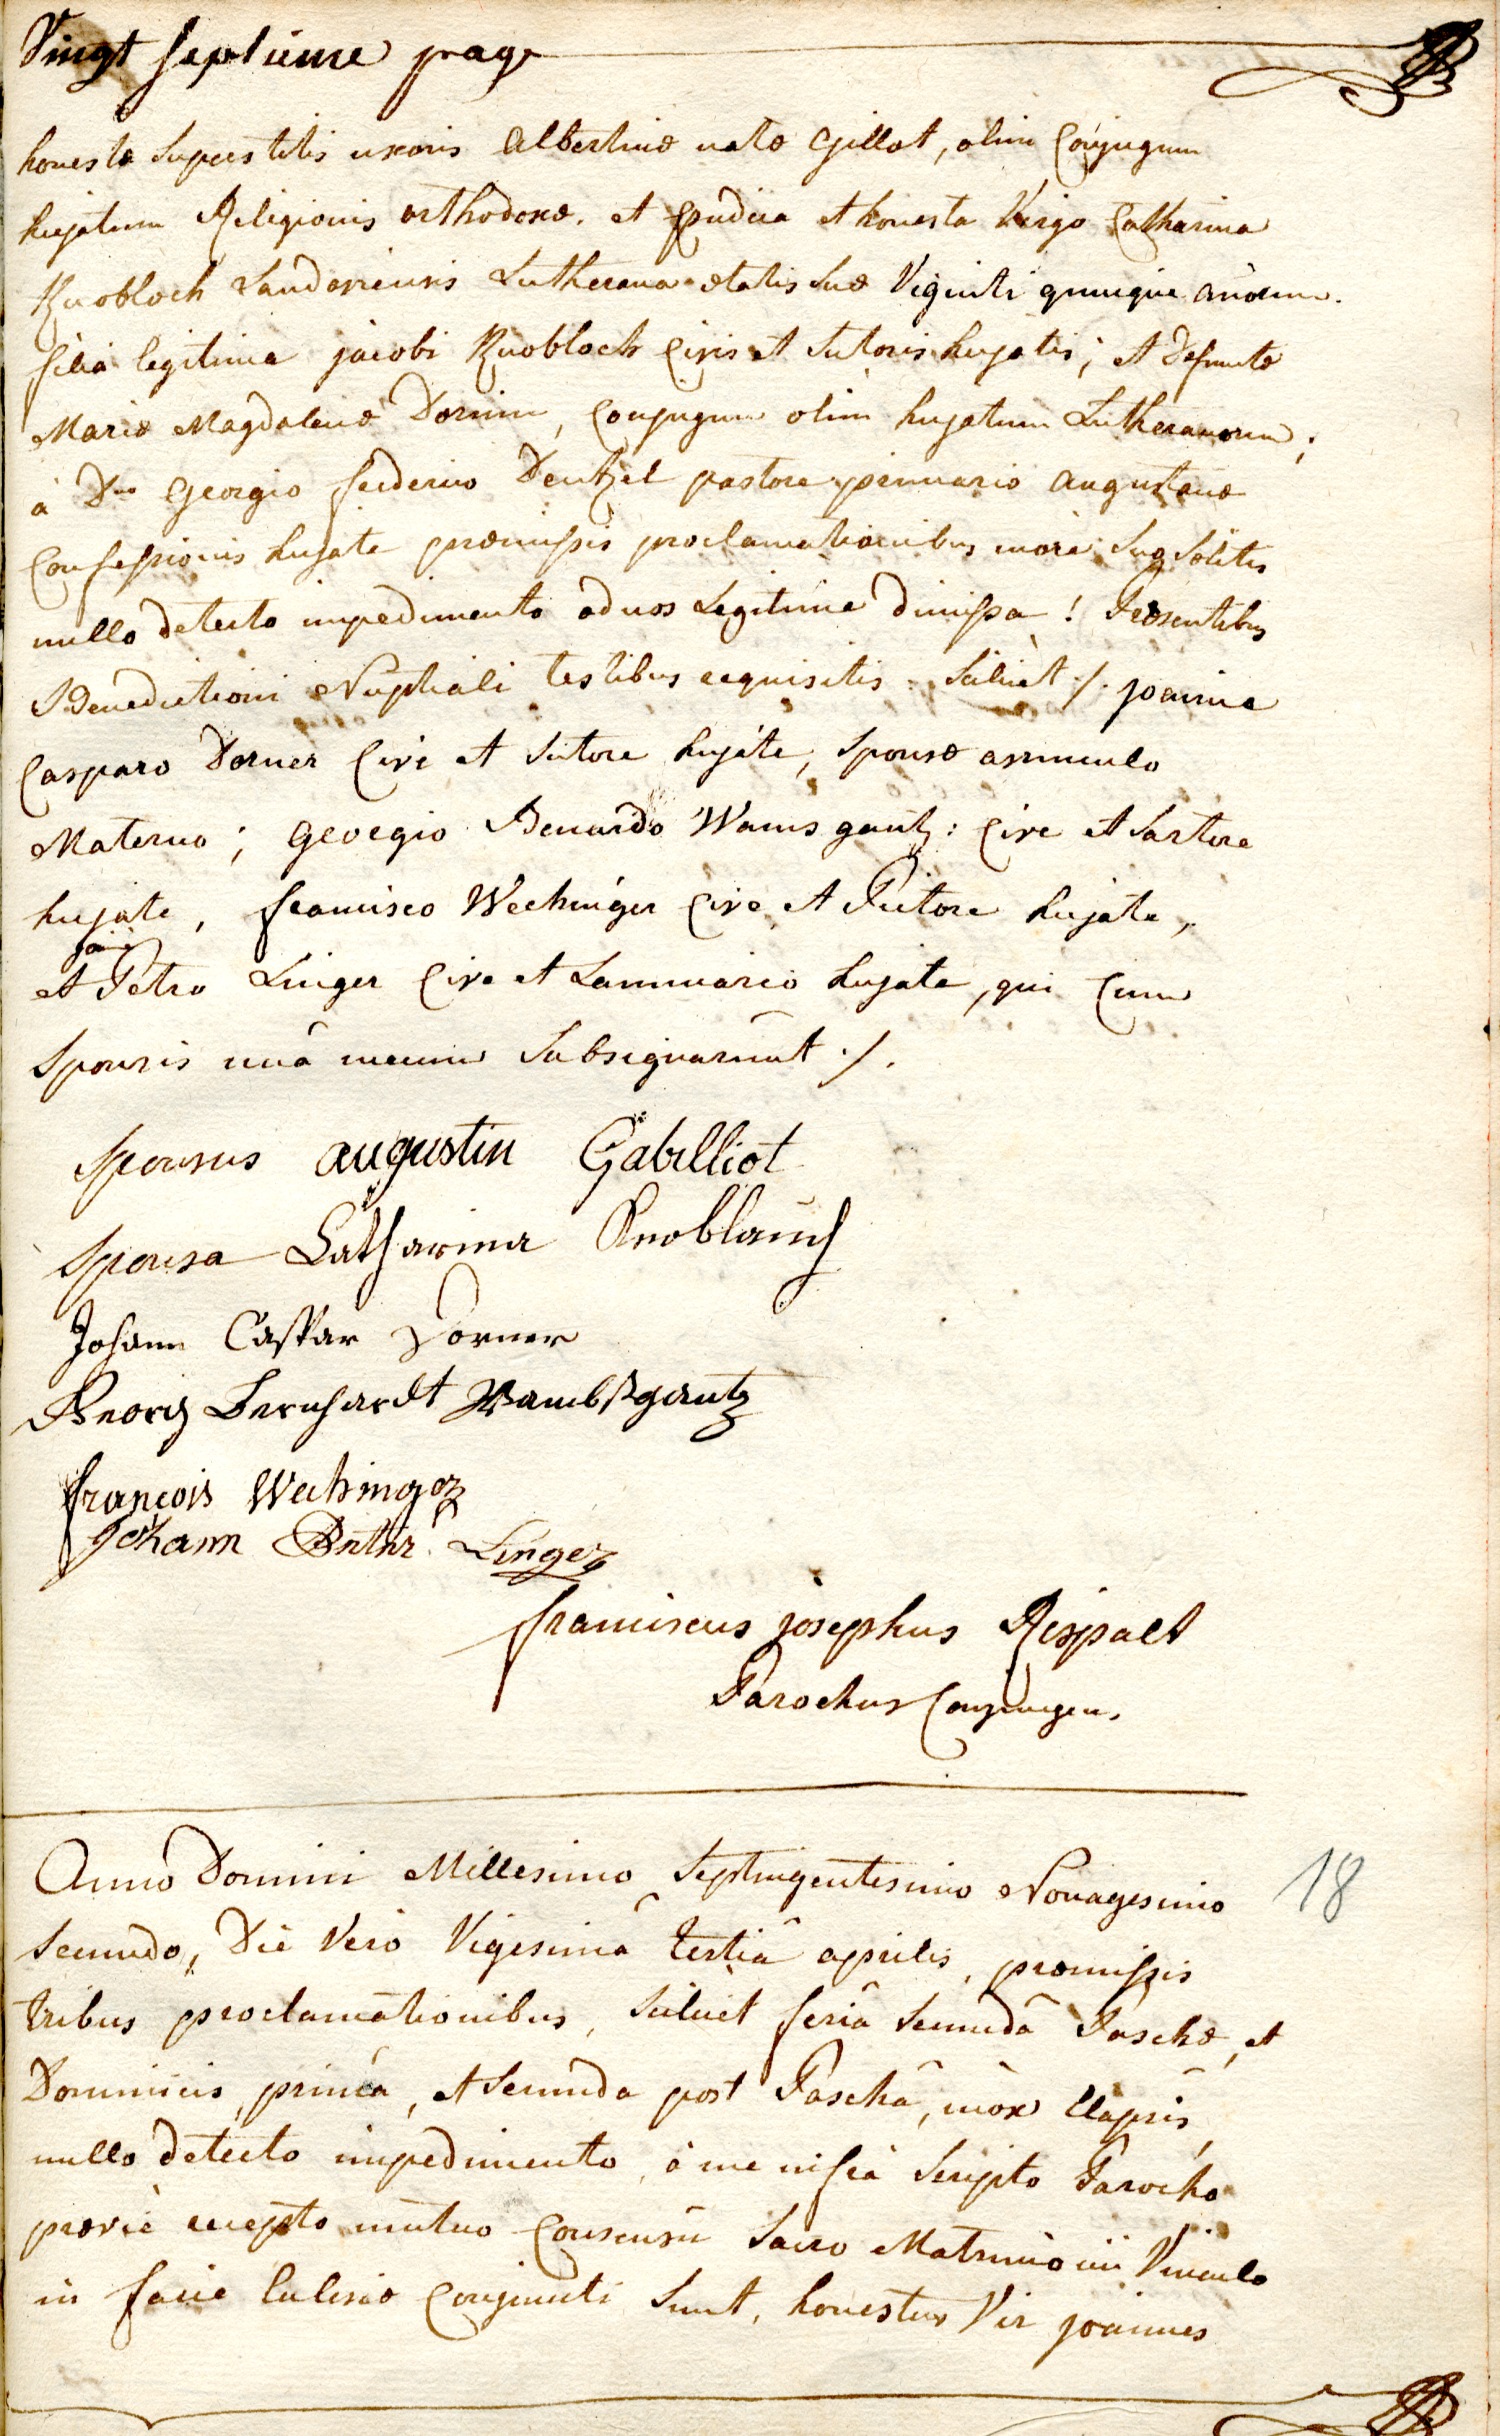 Vingt septieme page
honestæ Superstitis uxoris Albertinæ natæ Gillot, olim Conjugum
hujatum Religionis orthodoxæ. et pudica et honesta Virgo Catharina
Knobloch Landaviensis Lutherana ætatis suæ Viginti quinque annorum.
filia legitima jacobi Knobloch Civis et Sutoris hujatis; et Defunctæ
Mariæ Magdalenæ Dornim, Conjugum olim hujatum Lutheranorum;
à Dno Georgio friderico Dentzel pastore primario augustanæ
Confessionis hujate præmissis proclamationibus more suo Solitis
nullo detecto impedimento ad nos Legitime dimissa! Præsentibus
Benedictioni Nuptiali testibus requisitis Scilicet ./. joanne
Casparo Dorner Cive et Sutore hujate, Sponsæ avunculo
Materno; georgio Benardo Wamsgantz: Cive et Sartore
hujate, francisco Wechinger Cive et Pictore hujate,
joan:
et Petro Linger Cive et Lanuario hujate, qui Cum
Sponsis unâ mecum Subsignarunt ./.
Sponsus augustin Gabilliot
Sponsa Catharina Knoblauch
Johann Caspar Dorner
Georg Bernhardt Wambsgantz
françois Wechinger
Johann Peter Linger
franciscus josephus Rispalt
Parochus Conjungen.
Anno Domini Millesimo Septingentesimo Nonagesimo
18
Secundo, Die Vero Vigesimâ tertiâ aprilis, præmissis
tribus proclamationibus, Scilicet feriâ Secundâ Paschæ, et
Dominicis, primâ, et Secunda post Pascha, mox Elapsis,
nullo detecto impedimento, à me infrà Scripto Parocho
prævie accepto mutuo Consensu Sacro Matrimonii Vinculo
in facie Eclesiæ Conjuncti Sunt, honestus Vir joannes